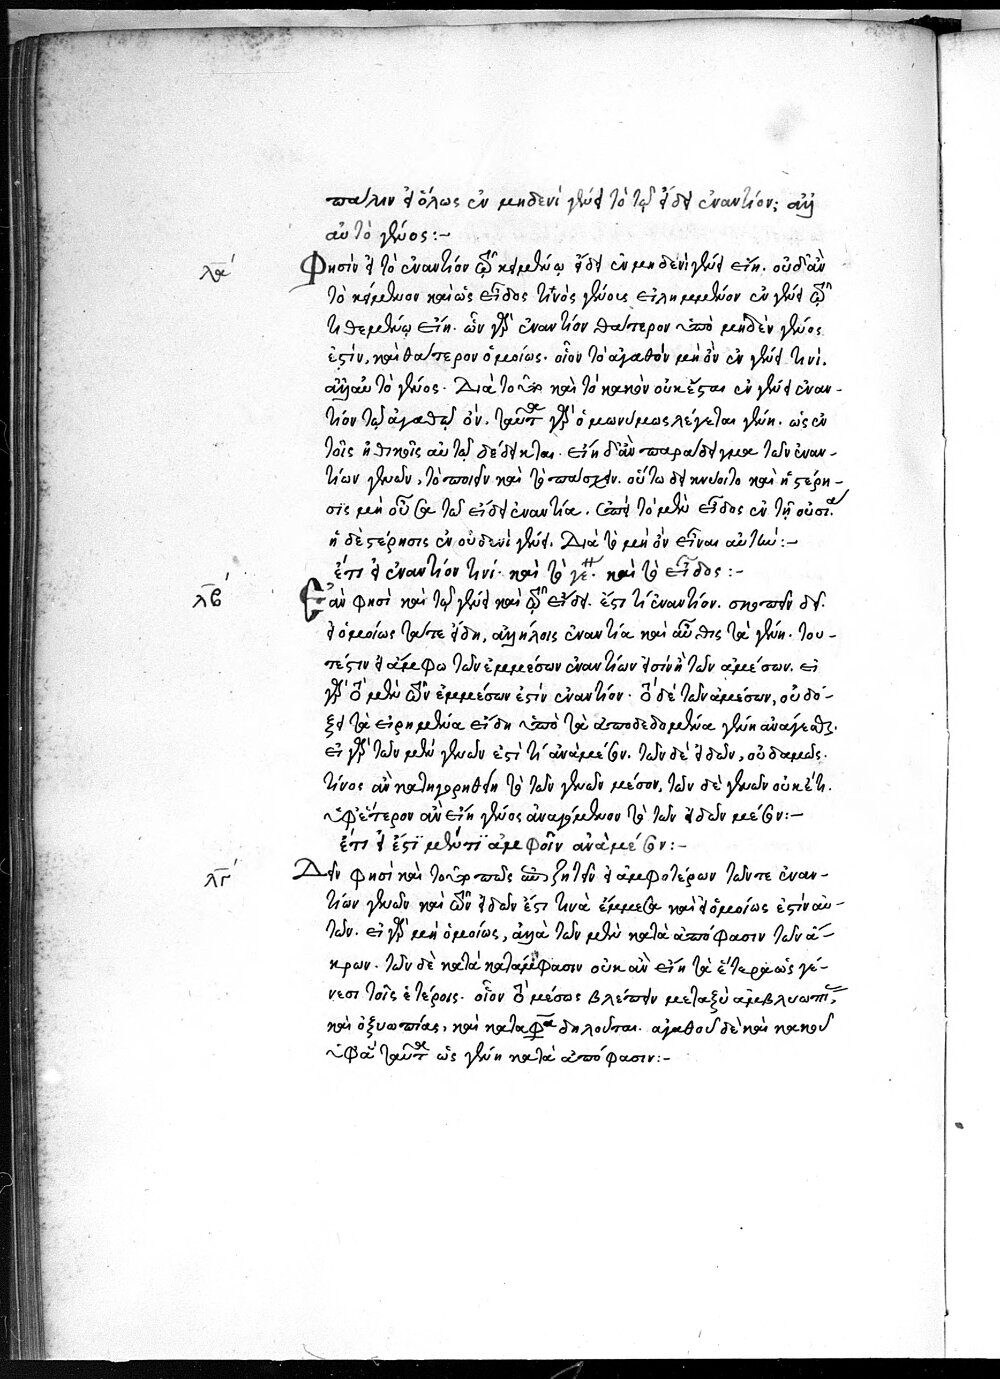 πάλιν εἰ ὅλως ἐν μηδενὶ γένει τὸ τῷ εἴδει ἐναντίον; ἀλλ'
αὐτὸ γένος:-
λα΄ Φησὶν εἰ τὸ ἐναντίον τῷ κειμένῳ εἴδει ἐν μηδενὶ γένει εἴη. οὐδ' ἂν
τὸ κείμενον καὶ ὡς εἶδος τινὸς γένους εἰλημμένον ἐν γένει τῷ
τιθεμένῳ εἴη. ὧν γὰρ ἐναντίον θάτερον ὑπὸ μηδὲν γένος
ἐστὶν, καὶ θάτερον ὁμοίως. οἷον τὸ ἀγαθὸν μὴ ὂν ἐν γένει τινί.
ἀλλ' αὐτὸ γένος. Διὰ τοῦτο καὶ τὸ κακὸν οὐκ ἔσται ἐν γένει ἐναν-
τίον τῷ ἀγαθῷ ὄν. ταῦτα γὰρ ὁμωνύμως λέγεται γένη. ὡς ἐν
τοῖς ἠθικοῖς αὐτῷ δέδεικται. εἴη δ' ἂν παράδειγμα τῶν ἐναν-
τίων γενῶν, τὸ ποιεῖν καὶ τὸ πάσχειν. οὕτω δεικνύοιτο καὶ ἡ στέρη-
σις μὴ οὖσα τῷ εἴδει ἐναντία. ἐπεὶ τὸ μὲν εἶδος ἐν τῇ οὐσίᾳ
ἡ δὲ στέρησις ἐν οὐδενὶ γένει. Διὰ τὸ μὴ ὂν εἶναι αὐτήν:-
ἔτι εἰ ἐναντίον τινί. καὶ τὸ γένη. καὶ τὸ εἶδος:-
λβ΄ Ἐὰν φησὶ καὶ τῷ γένει καὶ τῷ εἴδει. ἔστι τί ἐναντίον. σκοπεῖν δεῖ.
εἰ ὁμοίως τά τε εἴδη, ἀλλήλοις ἐναντία καὶ αὖθις τὰ γένη. του-
τέστιν εἰ ἄμφω τῶν ἐμμέσων ἐναντίων εἰσὶν ἢ τῶν ἀμέσων. εἰ
γὰρ τὸ μὲν τῶν ἐμμέσων ἐστὶν ἐναντίον. τὸ δὲ τῶν ἀμέσων, οὐ δό-
ξει τὰ εἰρημένα εἴδη ὑπὸ τὰ ἀποδεδομένα γένη ἀνάγεσθαι.
εἰ γὰρ τῶν μὲν γενῶν ἐστί τι ἀνάμεσον. τῶν δὲ εἰδῶν, οὐδαμῶς.
τίνος ἂν κατηγορηθείη τὸ τῶν γενῶν μέσον. τῶν δὲ γενῶν οὐκέτι.
ὑφ' ἕτερον ἂν εἴη γένος ἀναγόμενον τὸ τῶν εἰδῶν μέσον:-
ἔτι εἰ ἔστι μέν τι ἀμφοῖν ἀνάμεσον:-
λγ΄ Δεῖν φησὶ καὶ τοῦτο πῶς ζητεῖν εἰ ἀμφοτέρων τῶν τε ἐναν-
τίων γενῶν καὶ τῶν εἰδῶν ἔστι τινὰ ἔμμεσα καὶ εἰ ὁμοίως ἐστὶν αὐ-
τῶν. εἰ γὰρ μὴ ὁμοίως, ἀλλὰ τῶν μὲν κατὰ ἀπόφασιν τῶν ἄ-
κρων. τῶν δὲ κατὰ κατάφασιν οὐκ ἂν εἴη τὰ ἕτερα ὡς γέ-
νεσι τοῖς ἑτέροις. οἷον τὸ μέσως βλέπειν μεταξὺ ἀμβλυωπίας,
καὶ ὀξυωπίας, καὶ καταφάσει δηλοῦται. ἀγαθοῦ δὲ καὶ κακοῦ
ταῦτα ὡς γένη κατὰ ἀπόφασιν:-